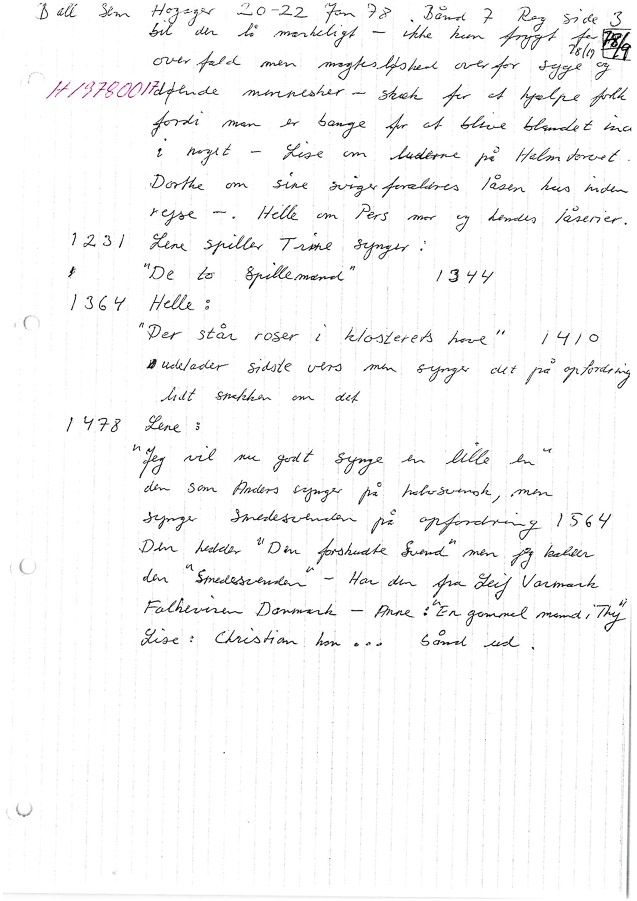 Ball Sem Hogager 20-22 Jan 78. Bånd 7 Rag side 3
bil der lå mærkeligt - ikke kun frygt for 78/19 78/19
overfald men magtesløshed overfor syge og
H/197800171 døende mennesker - skæk for at hjælpe folk
fordi man er bange for at blive blandet ind
i noget - Lise om luderne på Halmtorvet.
Dorthe om sine svigerforældres låsen hus inden
rejse -. Helle om Pers mor og hendes låserier.
1231 Lene spiller Trine synger:
"De to Spillemænd" 1344
1364 Helle:
"Der står roser i klosterets have" 1410
udelader sidste vers men synger det på opfordring
lidt snakken om det
1478 Lene:
"Jeg vil nu godt synge en lille en"
den som Anders synger på halvsvensk, men
synger Smedesvenden på opfordring 1564
Den hedder "Den forskudte Svend" men jeg kalder
den "Smedesvenden" - Har den fra Leif Varmark
Folkeviser Danmark - Anne: "En gammel mand i Thy"
Lise: Christian han ... bånd ud.